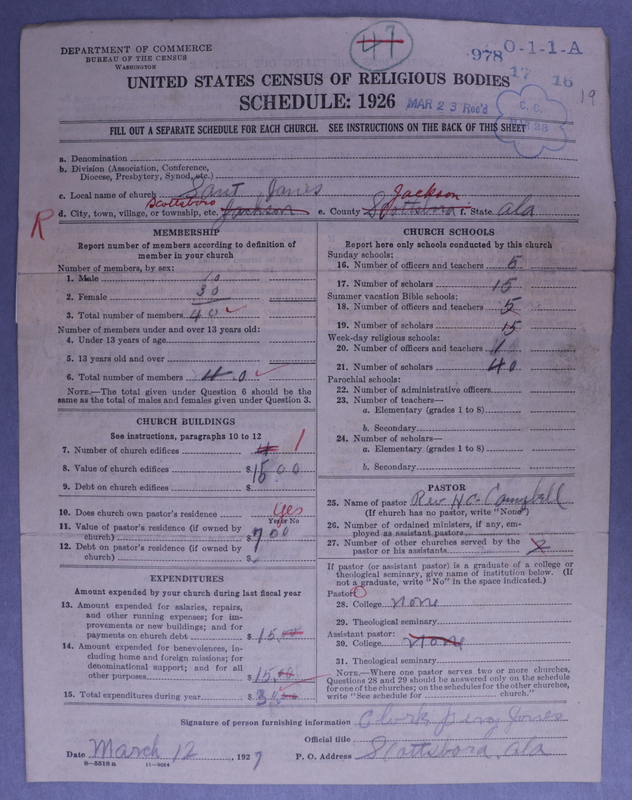 DEPARTMENT OF COMMERCE
BUREAU OF THE CENSUS
WASHINGTON
47
978 0-1-1-A
17 16
19
UNITED STATES CENSUS OF RELIGIOUS BODIES
SCHEDULE: 1926
MAR 23 Rec'd
C. C.
FILL OUT A SEPARATE SCHEDULE FOR EACH CHURCH. SEE INSTRUCTIONS ON THE BACK OF THIS SHEET
a. Denomination
b. Division (Association, Conference,
Diocese, Presbytery, Synod, etc.)
c. Local name of church Sant James
R
d. City, town, village, or township, etc. Scottsboro Jackson e. County Jackson Scottsboro f. State Ala
MEMBERSHIP
Report number of members according to definition of
member in your church
Number of members, by sex:
1. Male 10
2. Female 30
3. Total number of members 40
Number of members under and over 13 years old:
4. Under 13 years of age
5. 13 years old and over
6. Total number of members 40
NOTE.—The total given under Question 6 should be the
same as the total of males and females given under Question 3.
CHURCH BUILDINGS
See instructions, paragraphs 10 to 12
7. Number of church edifices 1
8. Value of church edifices $ 1500
9. Debt on church edifices $
10. Does church own pastor's residence yes
Yes or No
11. Value of pastor's residence (if owned by
church) $ 700
12. Debt on pastor's residence (if owned by
church) $
EXPENDITURES
Amount expended by your church during last fiscal year
13. Amount expended for salaries, repairs,
and other running expenses; for im-
provements or new buildings; and for
payments on church debt $ 15.00
14. Amount expended for benevolences, in-
cluding home and foreign missions; for
denominational support; and for all
other purposes $ 15.00
15. Total expenditures during year $
CHURCH SCHOOLS
Report here only schools conducted by this church
Sunday schools:
16. Number of officers and teachers 5
17. Number of scholars 15
Summer vacation Bible schools:
18. Number of officers and teachers 5
19. Number of scholars 15
Week-day religious schools:
20. Number of officers and teachers 1
21. Number of scholars 40
Parochial schools:
22. Number of administrative officers
23. Number of teachers—
a. Elementary (grades 1 to 8)
b. Secondary
24. Number of scholars—
a. Elementary (grades 1 to 8)
b. Secondary
PASTOR
25. Name of pastor Rev H C Campbell
(If church has no pastor, write "None")
26. Number of ordained ministers, if any, em-
ployed as assistant pastors
27. Number of other churches served by the
pastor or his assistants
If pastor (or assistant pastor) is a graduate of a college or
theological seminary, give name of institution below. (If
not a graduate, write "No" in the space indicated.)
Pastor: O
28. College none
29. Theological seminary
Assistant pastor:
30. College none
31. Theological seminary
NOTE.—Where one pastor serves two or more churches,
Questions 28 and 29 should be answered only on the schedule
for one of the churches; on the schedules for the other churches,
write "See schedule for church."
Signature of person furnishing information Clerk Jones
Official title
Date March 12, 1927 P. O. Address Scottsboro, Ala
8-5518 a 11-9024